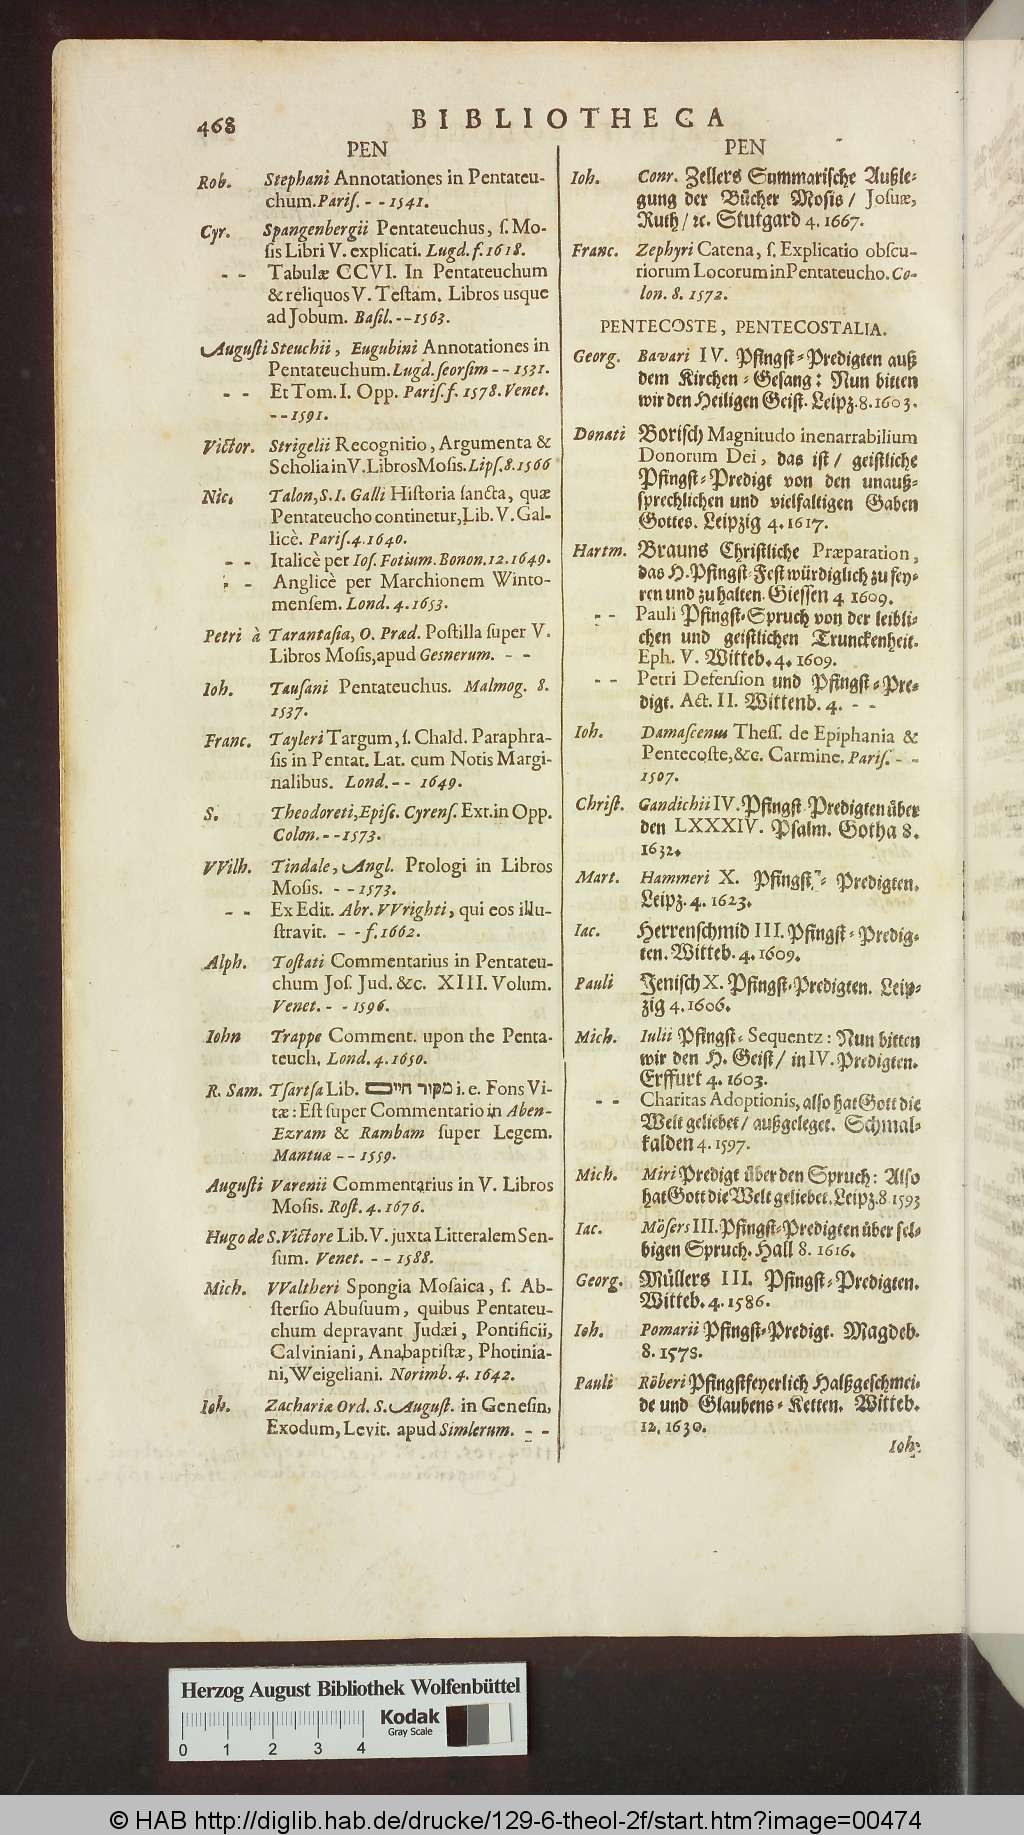 468
BIBLIOTHECA
PEN
Rob. Stephani Annotationes in Pentateu-
chum. Paris. - - 1541.
Cyr. Spangenbergii Pentateuchus, ſ. Mo-
ſis Libri V. explicati. Lugd. f. 1618.
- - Tabulæ CCVI. In Pentateuchum
& reliquos V. Teſtam. Libros usque
ad Jobum. Baſil. - - 1563.
Auguſti Steuchii, Eugubini Annotationes in
Pentateuchum. Lugd. ſeorſim - - 1531.
- - Et Tom. I. Opp. Pariſ. f. 1578. Venet.
- - 1591.
Victor. Strigelii Recognitio, Argumenta &
Scholia in V. Libros Moſis. Lipſ. 8. 1566
Nic. Talon, S. I. Galli Hiſtoria ſancta, quæ
Pentateucho continetur, Lib. V. Gal-
licè. Pariſ. 4. 1640.
- - Italicè per Ioſ. Fotium. Bonon. 12. 1649.
- - Anglicè per Marchionem Winto-
menſem. Lond. 4. 1653.
Petri à Tarantaſia, O. Præd. Poſtilla ſuper V.
Libros Moſis, apud Gesnerum. - -
Ioh. Tauſani Pentateuchus. Malmog. 8.
1537.
Franc. Tayleri Targum, ſ. Chald. Paraphra-
ſis in Pentat. Lat. cum Notis Margi-
nalibus. Lond. - - 1649.
S. Theodoreti, Epiſc. Cyrenſ. Ext. in Opp.
Colon. - - 1573.
VVilh. Tindale, Angl. Prologi in Libros
Moſis. - - 1573.
- - Ex Edit. Abr. VVrighti, qui eos illu-
ſtravit. - - f. 1662.
Alph. Toſtati Commentarius in Pentateu-
chum Joſ. Jud. &c. XIII. Volum.
Venet. - - 1596.
Iohn Trappe Comment. upon the Penta-
teuch. Lond. 4. 1650.
R. Sam. Tſartſa Lib. מקור חיים i. e. Fons Vi-
tæ: Eſt ſuper Commentario in Aben-
Ezram & Rambam ſuper Legem.
Mantuæ - - 1559.
Auguſti Varenii Commentarius in V. Libros
Moſis. Roſt. 4. 1676.
Hugo de S. Victore Lib. V. juxta Litteralem Sen-
ſum. Venet. - - 1588.
Mich. VValtheri Spongia Moſaica, ſ. Ab-
ſterſio Abuſuum, quibus Pentateu-
chum depravant Judæi, Pontificii,
Calviniani, Anabaptiſtæ, Photinia-
ni, Weigeliani. Norimb. 4. 1642.
Ioh. Zachariæ Ord. S. Auguſt. in Geneſin,
Exodum, Levit. apud Simlerum. - -
PEN
Ioh. Conr. Zellers Summariſche Außle-
gung der Bücher Moſis / Joſuæ,
Ruth / ꝛc. Stutgard 4. 1667.
Franc. Zephyri Catena, ſ. Explicatio obſcu-
riorum Locorum in Pentateucho. Co-
lon. 8. 1572.
PENTECOSTE, PENTECOSTALIA.
Georg. Bavari IV. Pfingſt-Predigten auß
dem Kirchen-Geſang: Nun bitten
wir den Heiligen Geiſt. Leipz. 8. 1603.
Donati Boriſch Magnitudo inenarrabilium
Donorum Dei, das iſt / geiſtliche
Pfingſt-Predigt von den unauß-
ſprechlichen und vielfaltigen Gaben
Gottes. Leipzig 4. 1617.
Hartm. Brauns Chriſtliche Præparation,
das H. Pfingſt-Feſt würdiglich zu fey-
ren und zu halten. Gieſſen 4 1609.
- - Pauli Pfingſt-Spruch von der leibli-
chen und geiſtlichen Trunckenheit.
Eph. V. Witteb. 4. 1609.
- - Petri Defenſion und Pfingſt-Pre-
digt. Act. II. Wittenb. 4. - -
Ioh. Damaſcenus Theſſ. de Epiphania &
Pentecoſte, &c. Carmine. Pariſ. - -
1507.
Chriſt. Gandichii IV. Pfingſt-Predigten über
den LXXXIV. Pſalm. Gotha 8.
1632.
Mart. Hammeri X. Pfingſt-Predigten.
Leipz. 4. 1623.
Iac. Herrenſchmid III. Pfingſt-Predig-
ten. Witteb. 4. 1609.
Pauli Jeniſch X. Pfingſt-Predigten. Leip-
zig 4. 1606.
Mich. Iulii Pfingſt-Sequentz: Nun bitten
wir den H. Geiſt / in IV. Predigten.
Erffurt 4. 1603.
- - Charitas Adoptionis, alſo hat Gott die
Welt geliebet / außgeleget. Schmal-
kalden 4. 1597.
Mich. Miri Predigt über den Spruch: Alſo
hat Gott die Welt geliebet. Leipz. 8 1593
Iac. Möſers III. Pfingſt-Predigten über ſel-
bigen Spruch. Hall 8. 1616.
Georg. Müllers III. Pfingſt-Predigten.
Witteb. 4. 1586.
Ioh. Pomarii Pfingſt-Predigt. Magdeb.
8. 1578.
Pauli Röberi Pfingſtfeyerlich Halßgeſchmei-
de und Glaubens-Ketten. Witteb.
12. 1630.
Ioh.
Herzog August Bibliothek Wolfenbüttel
Kodak
Gray Scale
0 1 2 3 4
© HAB http://diglib.hab.de/drucke/129-6-theol-2f/start.htm?image=00474